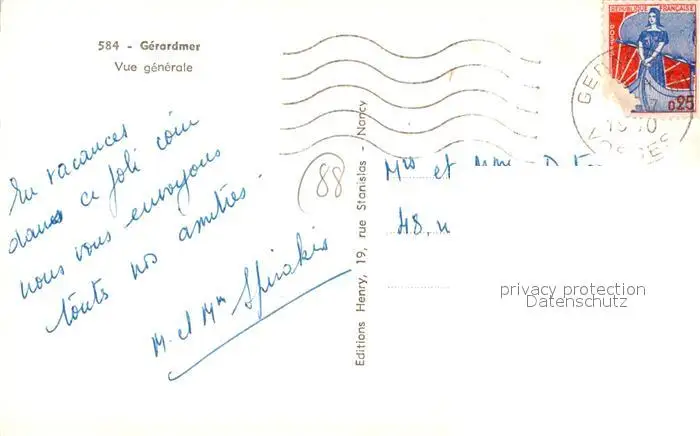 584 - Gérardmer
Vue générale
En vacances
dans ce joli coin
nous vous envoyons
touts nos amitiés.
M. et Mme Spirakis
88
Editions Henry, 19, rue Stanislas - Nancy
REPUBLIQUE FRANÇAISE
0,25
et Mme
48,
privacy protection
Datenschutz